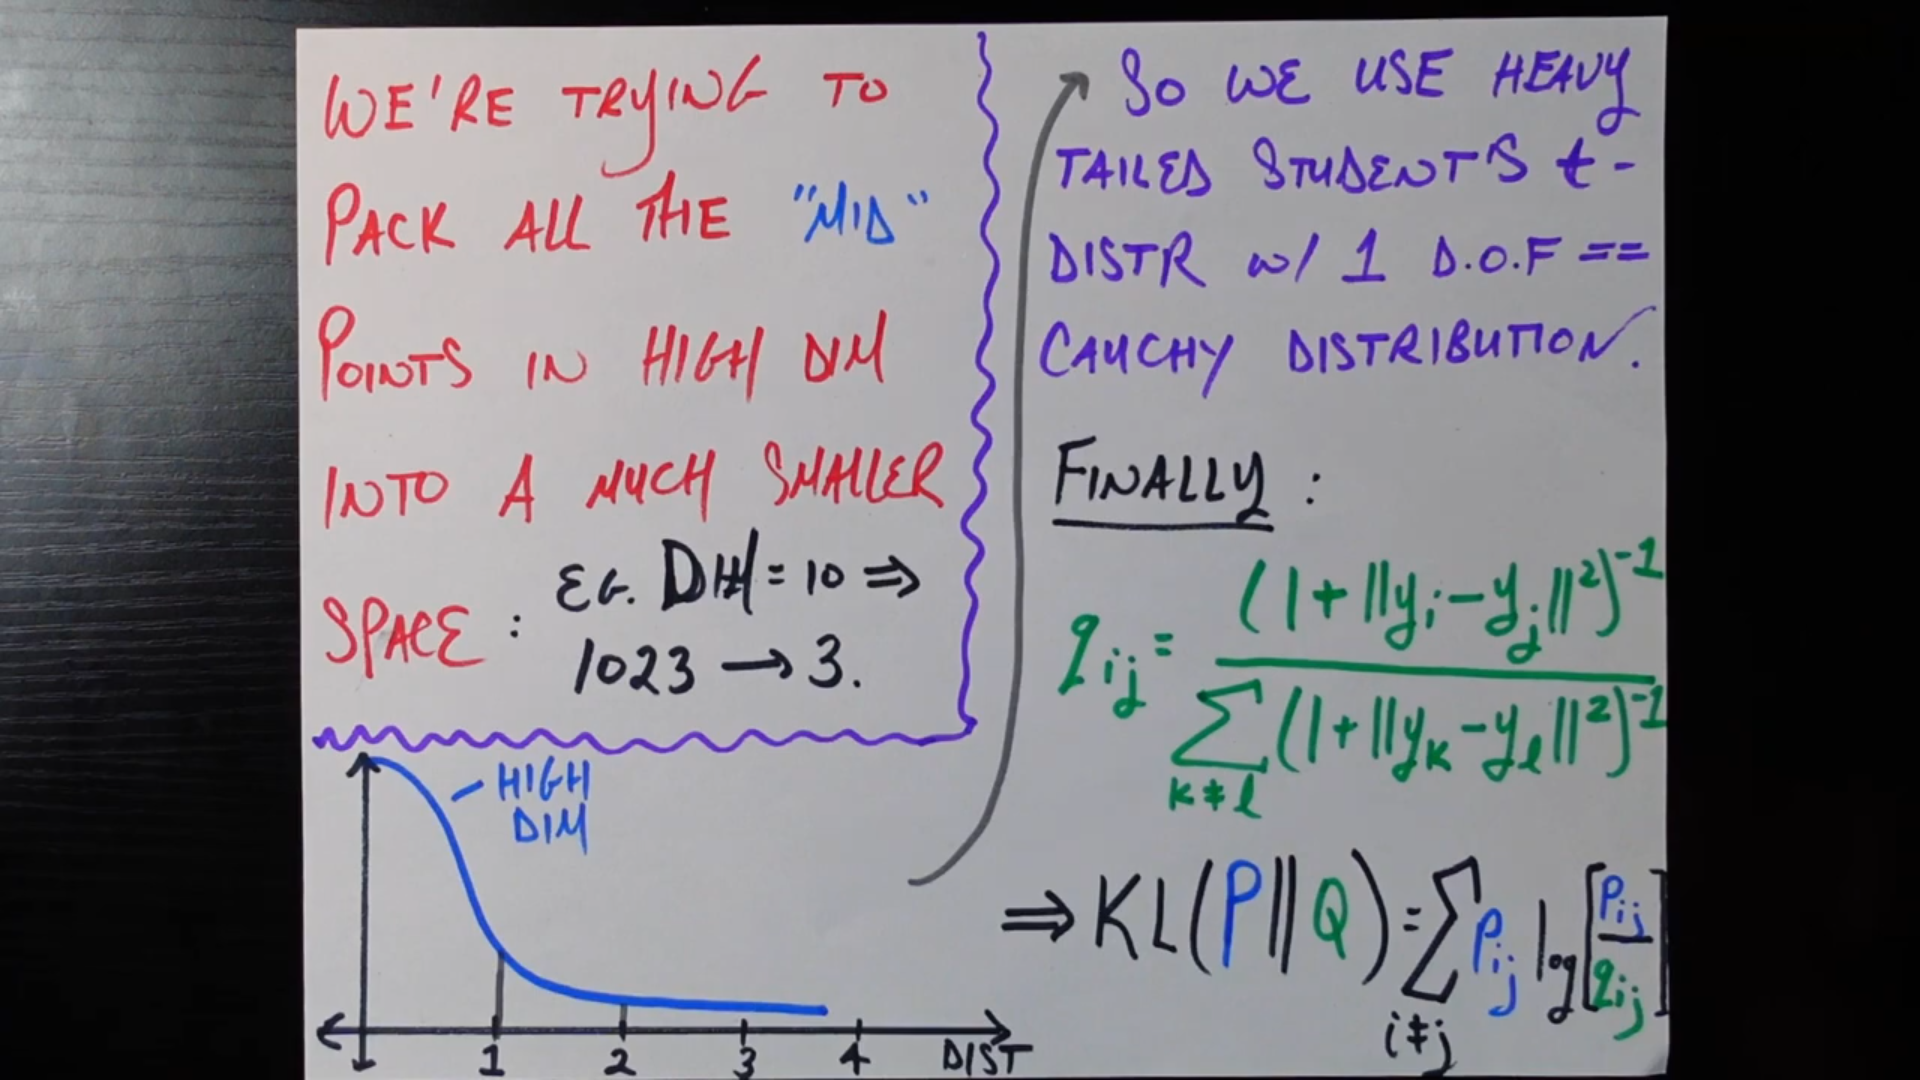 WE'RE TRYING TO
PACK ALL THE "MID"
POINTS IN HIGH DIM
INTO A MUCH SMALLER
SPACE : EG. DIM = 10 ⇒
1023 → 3.
HIGH
DIM
1 2 3 4 DIST
SO WE USE HEAVY
TAILED STUDENT'S t-
DISTR w/ 1 D.O.F ==
CAUCHY DISTRIBUTION.
FINALLY :
q_ij = (1 + ||y_i - y_j||²)^-1
∑_{k≠l} (1 + ||y_k - y_l||²)^-1
⇒ KL(P||Q) = ∑_{i≠j} P_ij log[P_ij / q_ij]